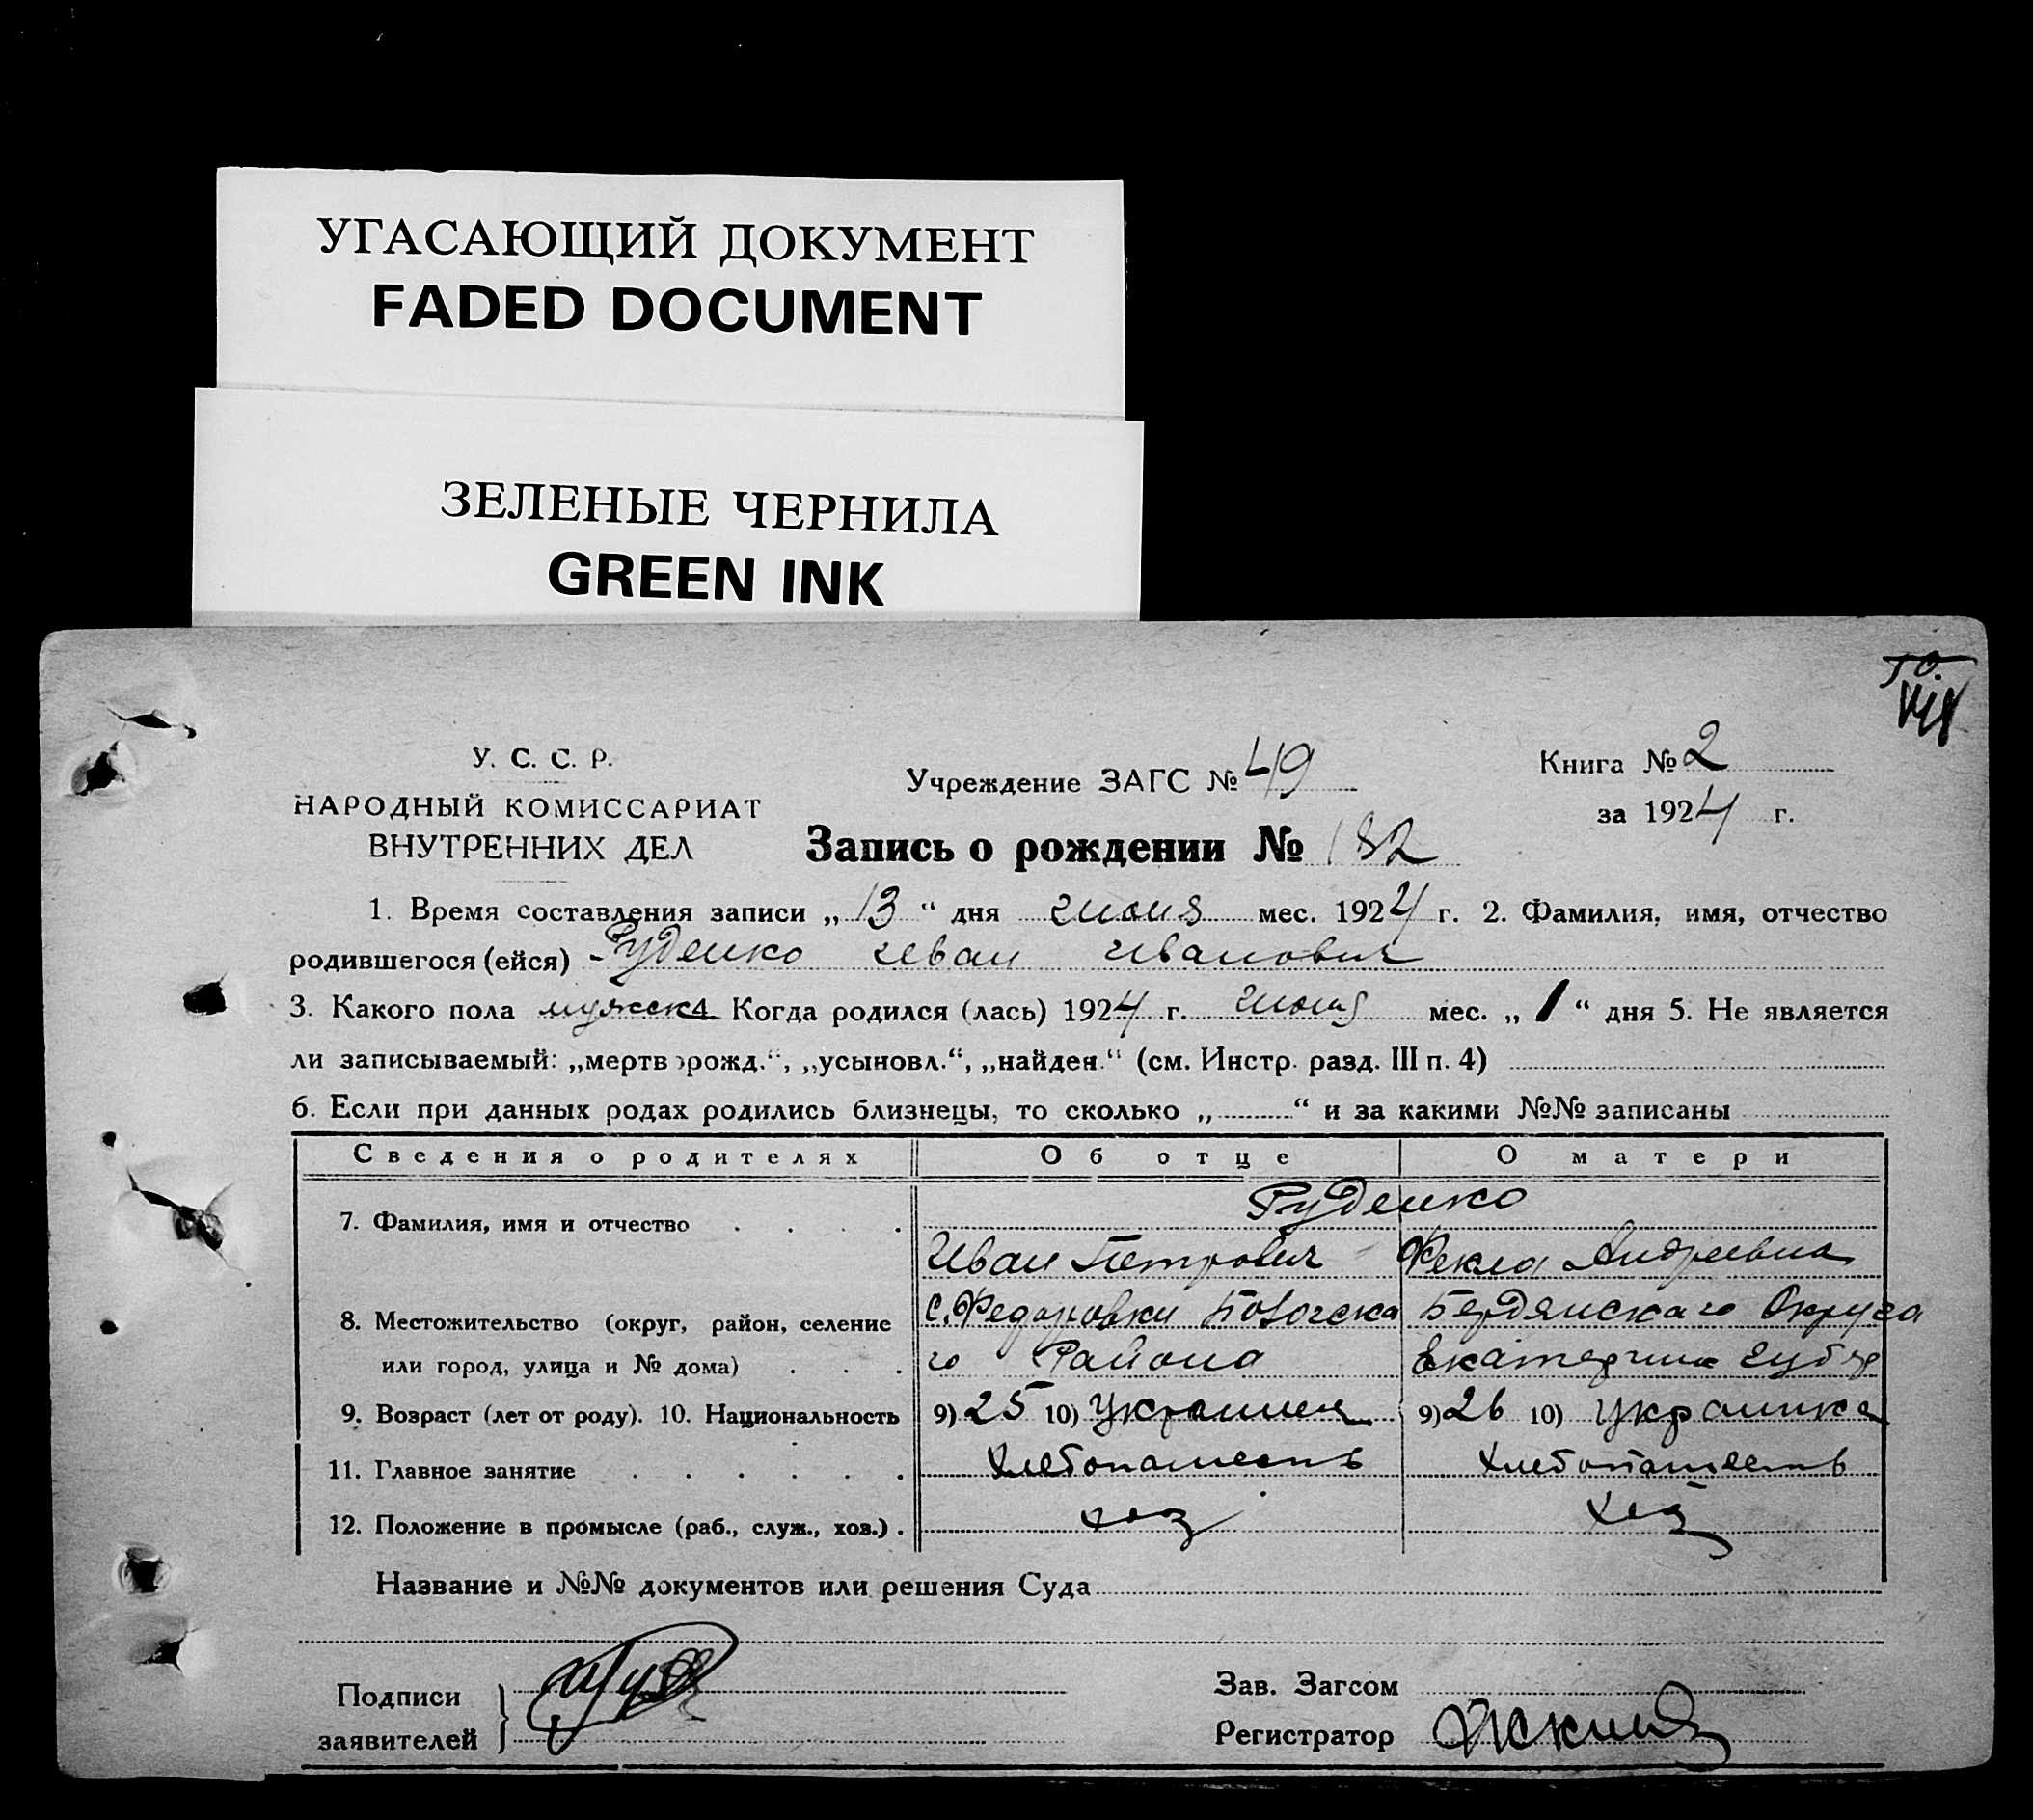 УГАСАЮЩИЙ ДОКУМЕНТ
FADED DOCUMENT
ЗЕЛЕНЫЕ ЧЕРНИЛА
GREEN INK
У. С. С. Р.
НАРОДНЫЙ КОМИССАРИАТ
ВНУТРЕННИХ ДЕЛ
Учреждение ЗАГС № 49
Книга № 2
за 1924 г.
Запись о рождении № 182
1. Время составления записи „ 13 “ дня июня мес. 1924 г. 2. Фамилия, имя, отчество
родившегося (ейся) Руденко Иван Иванович
3. Какого пола мужск 4. Когда родился (лась) 1924 г. июня мес. „ 1 “ дня 5. Не является
ли записываемый: „мертворожд.“, „усыновл.“, „найден.“ (см. Инстр. разд. III п. 4)
6. Если при данных родах родились близнецы, то сколько „ “ и за какими №№ записаны
Сведения о родителях Об отце О матери
Руденко
7. Фамилия, имя и отчество
Иван Петрович Фекла Андреевна
8. Местожительство (округ, район, селение с. Федоровки Бердянскаго Округа
или город, улица и № дома) го Района Екатерин губер
9. Возраст (лет от роду). 10. Национальность 9) 25 10) Украинец 9) 26 10) Украинка
11. Главное занятие Хлебопашест Хлебопашест
12. Положение в промысле (раб., служ., хоз.) хоз хоз
Название и №№ документов или решения Суда
Подписи
заявителей
Зав. Загсом
Регистратор